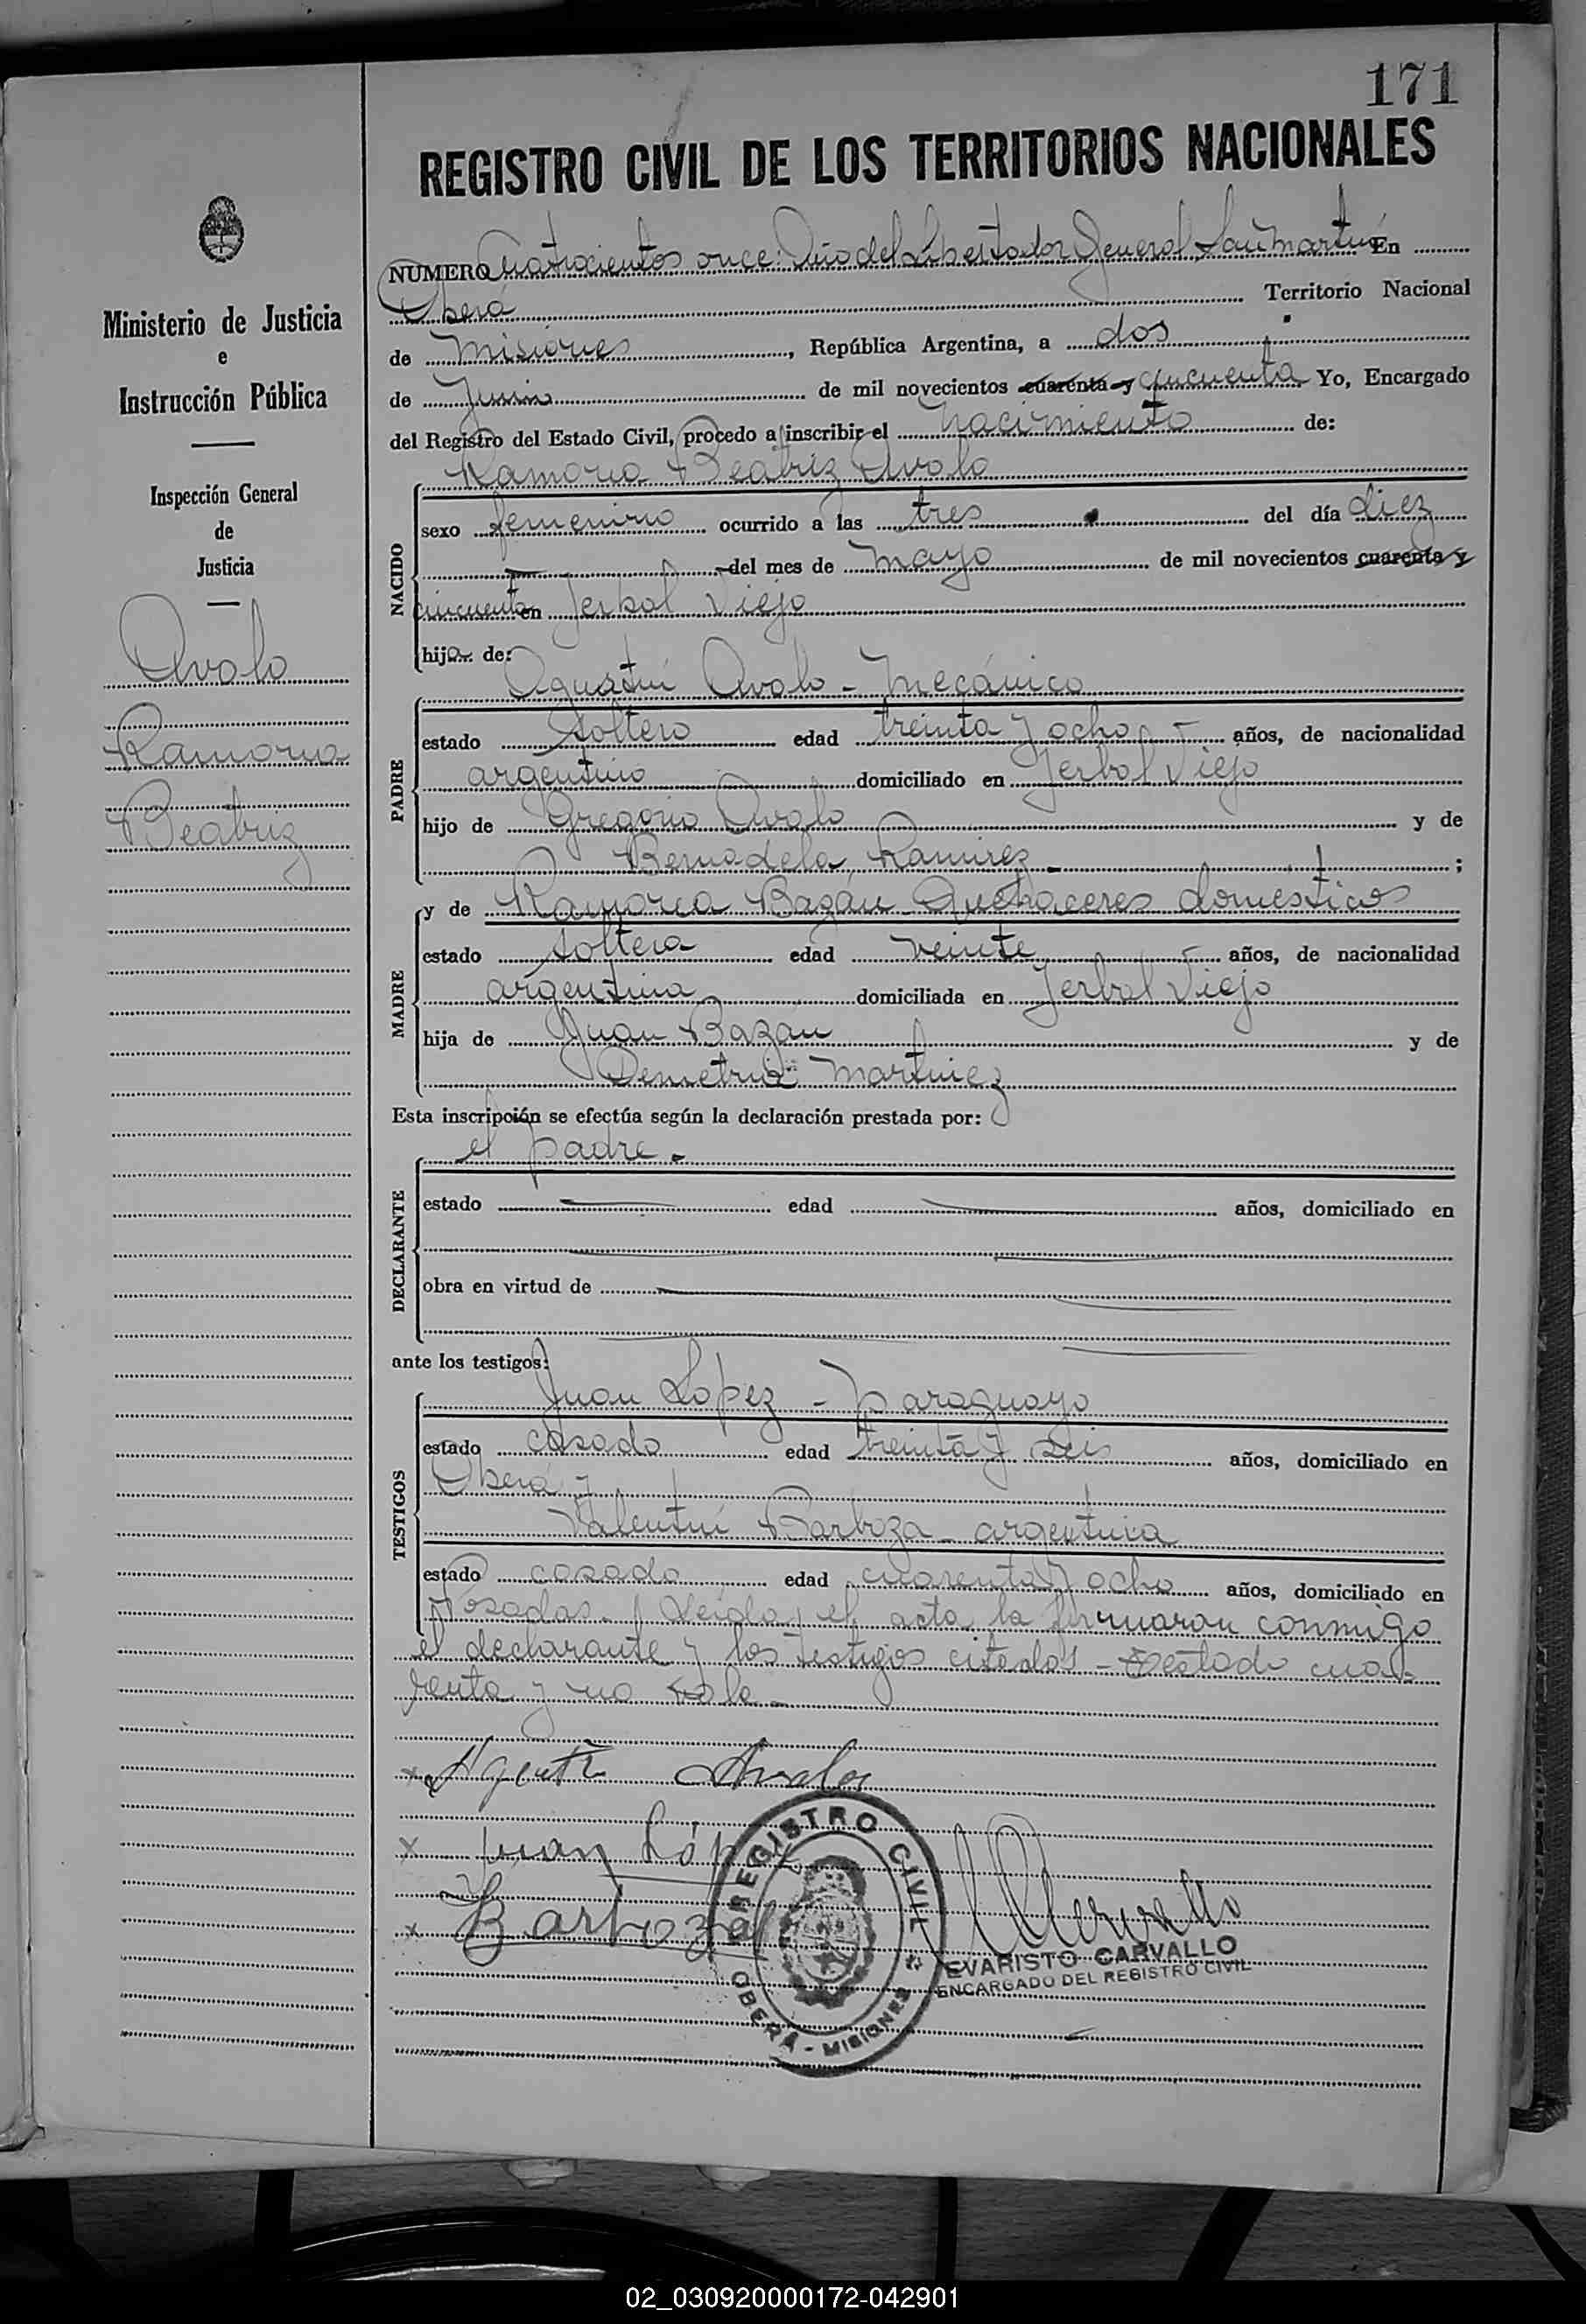 171
REGISTRO CIVIL DE LOS TERRITORIOS NACIONALES
Ministerio de Justicia
e
Instrucción Pública
Inspección General
de
Justicia
Avalo
Ramona
Beatriz
NUMERO Cuatrocientos once. Año del Libertador General San Martín En
Oberá Territorio Nacional
de Misiones, República Argentina, a dos
de Junio de mil novecientos cuarenta y cincuenta Yo, Encargado
del Registro del Estado Civil, procedo a inscribir el nacimiento de:
Ramona Beatriz Avalo
NACIDO
sexo femenino ocurrido a las tres del día diez
del mes de mayo de mil novecientos cuarenta y
cincuenta en Yerbal Viejo
hijo de:
Agustín Avalo - Mecánico
PADRE
estado soltero edad treinta y ocho años, de nacionalidad
argentino domiciliado en Yerbal Viejo
hijo de Gregorio Avalo y de
Bernadela Ramirez ;
MADRE
y de Ramona Bazán Quehaceres domésticos
estado soltera edad veinte años, de nacionalidad
argentina domiciliada en Yerbal Viejo
hija de Juan Bazán y de
Demetria Martinez
Esta inscripción se efectúa según la declaración prestada por:
el padre.
DECLARANTE
estado edad años, domiciliado en
obra en virtud de
ante los testigos:
Juan Lopez - paraguayo
TESTIGOS
estado casado edad treinta y seis años, domiciliado en
Oberá y
Valentín Barboza - argentina
estado casado edad cuarenta y ocho años, domiciliado en
Posadas. Leida el acta la firmaron conmigo
el declarante y los testigos citados - Testado cua-
renta y no vale -
x Agustin Avalos
x Juan López
x Barboza
REGISTRO CIVIL
OBERÁ - MISIONES
EVARISTO CARVALLO
ENCARGADO DEL REGISTRO CIVIL
02_030920000172-042901